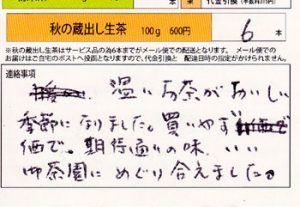 秋の蔵出し生茶 100g 600円 6本
※秋の蔵出し生茶はサービス品の為6本までがメール便での配送となります。 メール便での
お届けはご自宅のポストへ投函となりますので、代金引換と 配達日時の指定がかけられません。
連絡事項
温いお茶がおいしい
季節になりました。買いやす
価で。期待通りの味、いい
御茶園にめぐり合えました。